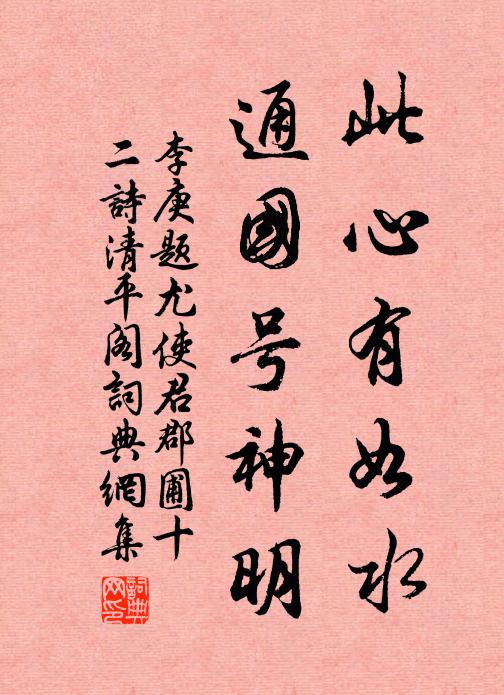 此心有如水
通國号神明
李庚题尤使君郡圃十
二詩清平阁詞典網集
詞典
网印